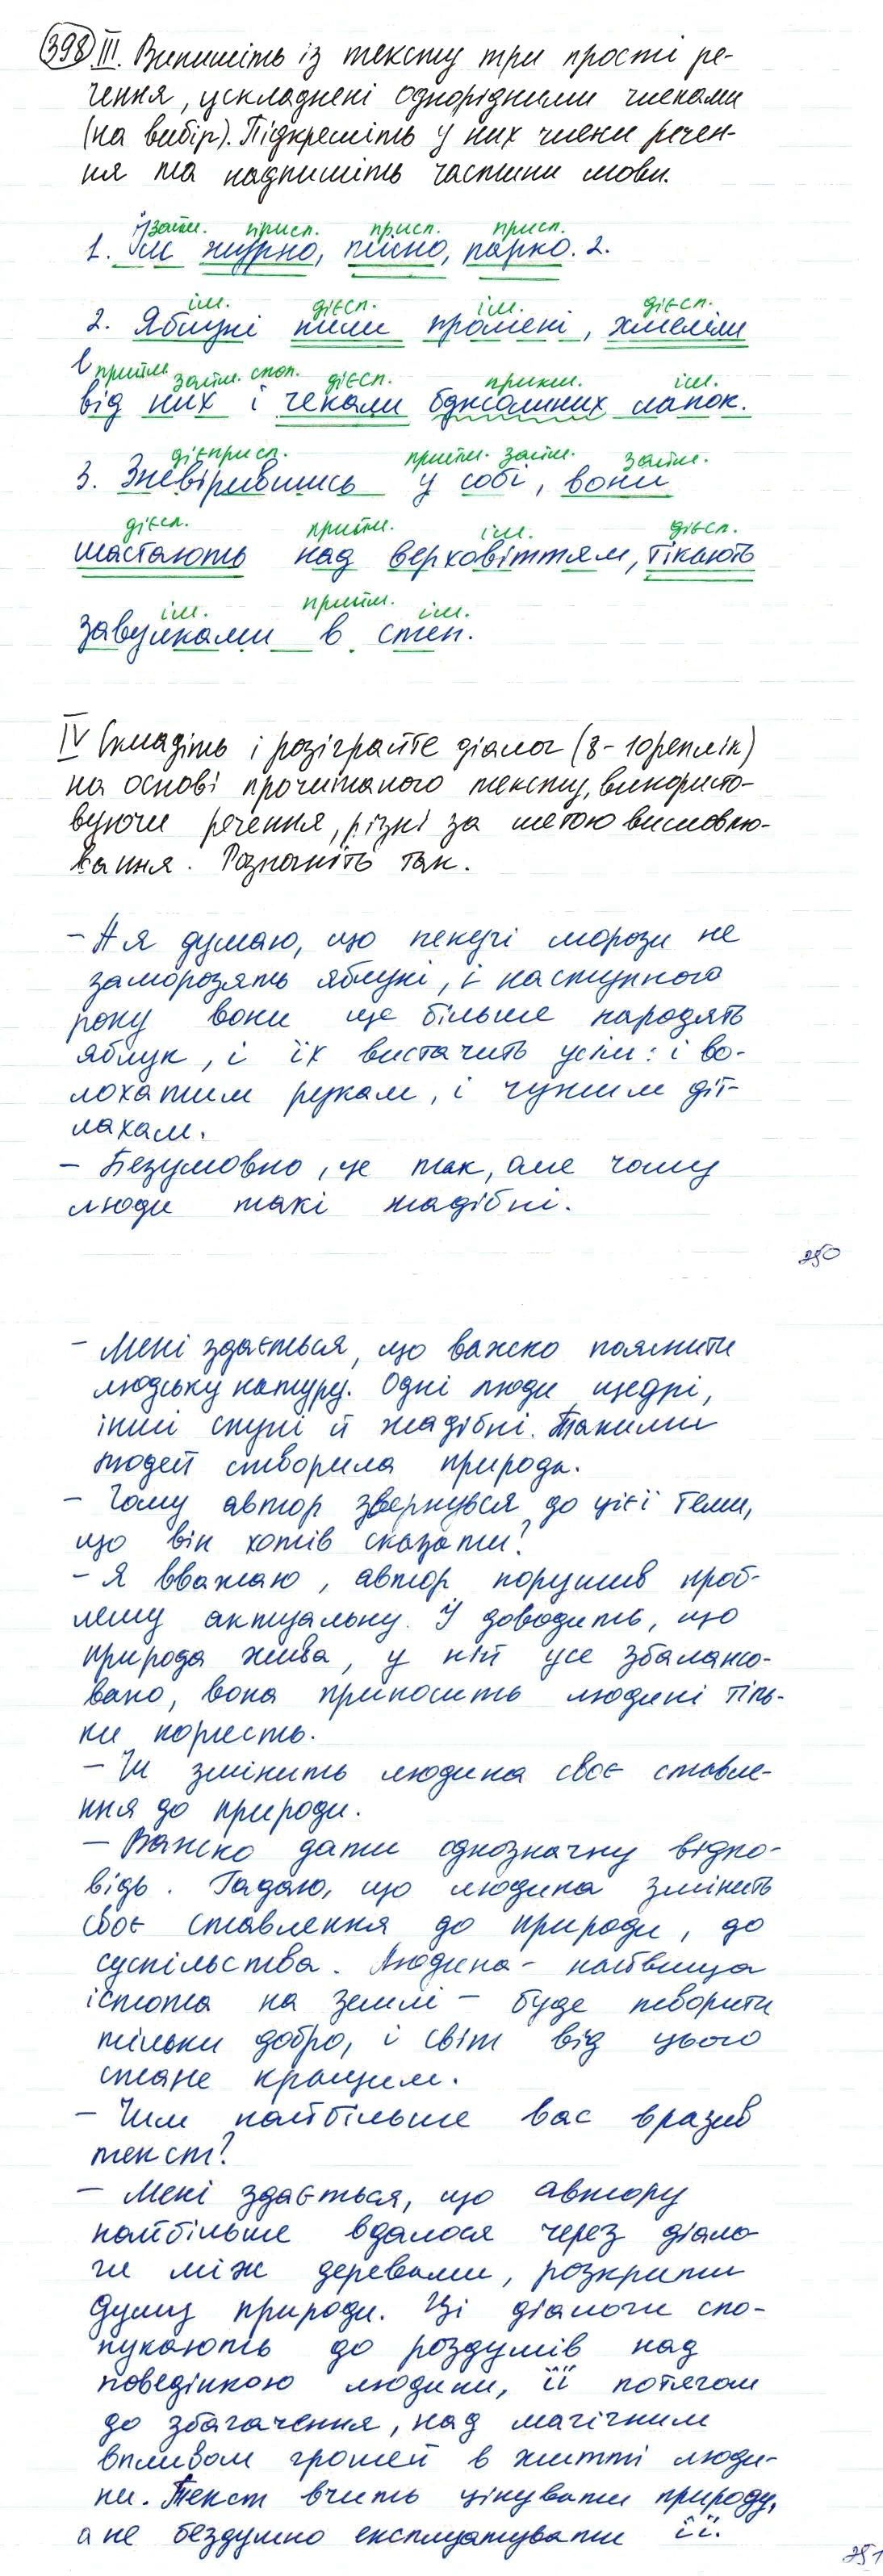 398 III. Випишіть із тексту три прості ре-
чення, ускладнені однорідними членами
(на вибір). Підкресліть у них члени речен-
ня та надпишіть частини мови.
займ. присл. присл. присл.
1. Їм журно, тісно, парко. 2.
ім. дієсл. ім. дієсл.
2. Яблуні пили промені, хмеліли
прийм. займ. спол. дієсл. прикм. ім.
від них і чекали бджолиних лапок.
дієприсл. прийм. займ. займ.
3. Зневірившись у собі, вони
дієсл. прийм. ім. дієсл.
шастають над верховіттям, тікають
ім. прийм. ім.
завулками в степ.
IV Складіть і розіграйте діалог (8-10 реплік)
на основі прочитаного тексту, використо-
вуючи речення, різні за метою висловлю-
вання. Розпочніть так.
- А я думаю, що пекучі морози не
заморозять яблуні, і наступного
року вони ще більше народять
яблук, і їх вистачить усім: і во-
лохатим рукам, і чужим діт-
лахам.
- Безумовно, це так, але чому
люди такі жадібні.
250
- Мені здається, що важко пояснити
людську натуру. Одні люди щедрі,
інші скупі й жадібні. Такими
людей створила природа.
- Чому автор звернувся до цієї теми,
що він хотів сказати?
- Я вважаю, автор порушив проб-
лему актуальну. Й доводить, що
природа жива, у ній усе збалансо-
вано, вона приносить людині тіль-
ки користь.
- Чи змінить людина своє ставле-
ння до природи.
- Важко дати однозначну відпо-
відь. Гадаю, що людина змінить
своє ставлення до природи, до
суспільства. Людина - найвища
істота на землі - буде творити
тільки добро, і світ від цього
стане кращим.
- Чим найбільше вас вразив
текст?
- Мені здається, що автору
найбільше вдалося через діало-
ги між деревами, розкрити
душу природи. Ці діалоги спо-
нукають до роздумів над
поведінкою людини, її потягом
до збагачення, над магічним
впливом грошей в житті люди-
ни. Текст вчить цінувати природу,
а не бездумно експлуатувати її.
251